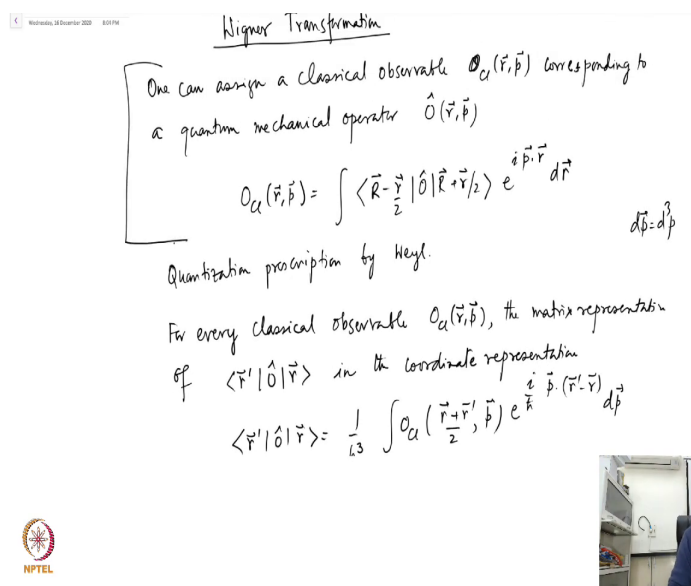 Wednesday, 16 December 2020 8:01 PM
Wigner Transformation
One can assign a classical observable O_cl(r⃗,p⃗) corresponding to
a quantum mechanical operator Ô(r⃗,p⃗)
O_cl(r⃗,p⃗) = ∫ <R⃗ - r⃗/2 |Ô| R⃗ + r⃗/2> e^{i p⃗.r⃗} dr⃗
dp⃗ = d³p
Quantization prescription by Weyl.
For every classical observable O_cl(r⃗,p⃗), the matrix representation
of <r⃗'|Ô|r⃗> in the coordinate representation
<r⃗'|Ô|r⃗> = 1/h³ ∫ O_cl((r⃗+r⃗')/2, p⃗) e^{i/ħ p⃗.(r⃗'-r⃗)} dp⃗
NPTEL